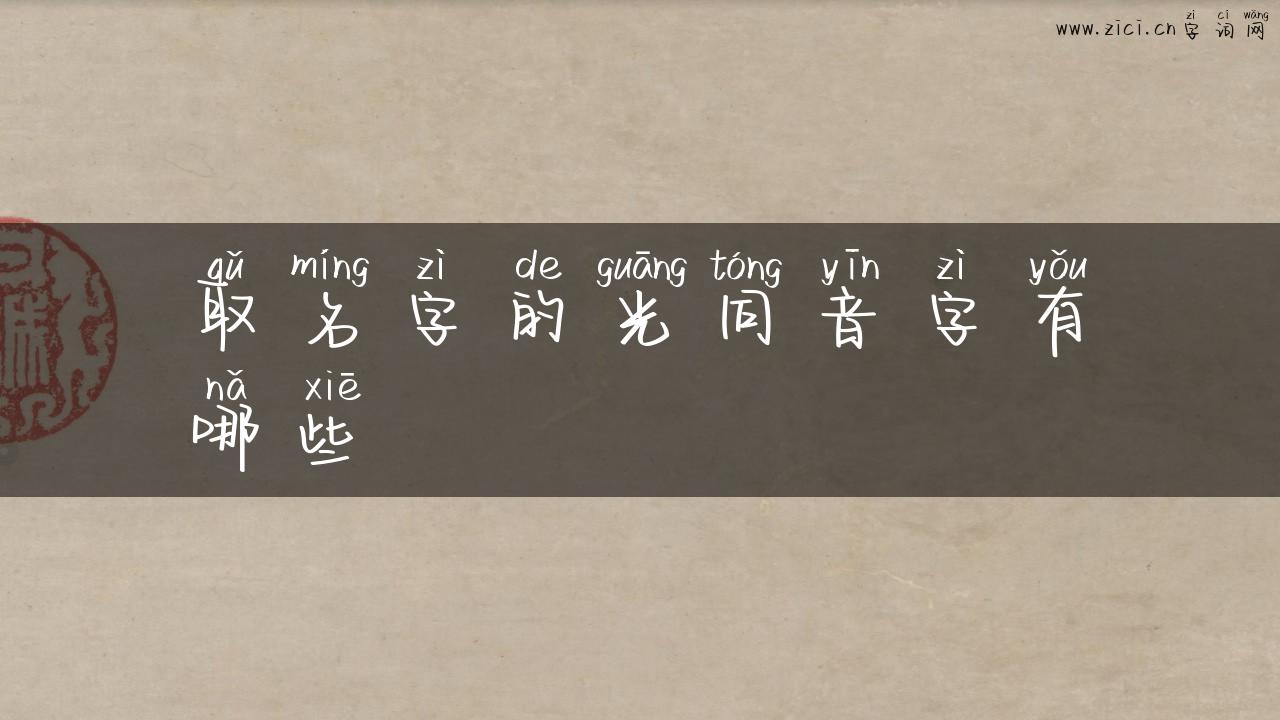 zì cí wǎng
www.zici.cn 字词网
qǔ míng zì de guāng tóng yīn zì yǒu
取名字的光同音字有
nǎ xiē
哪些